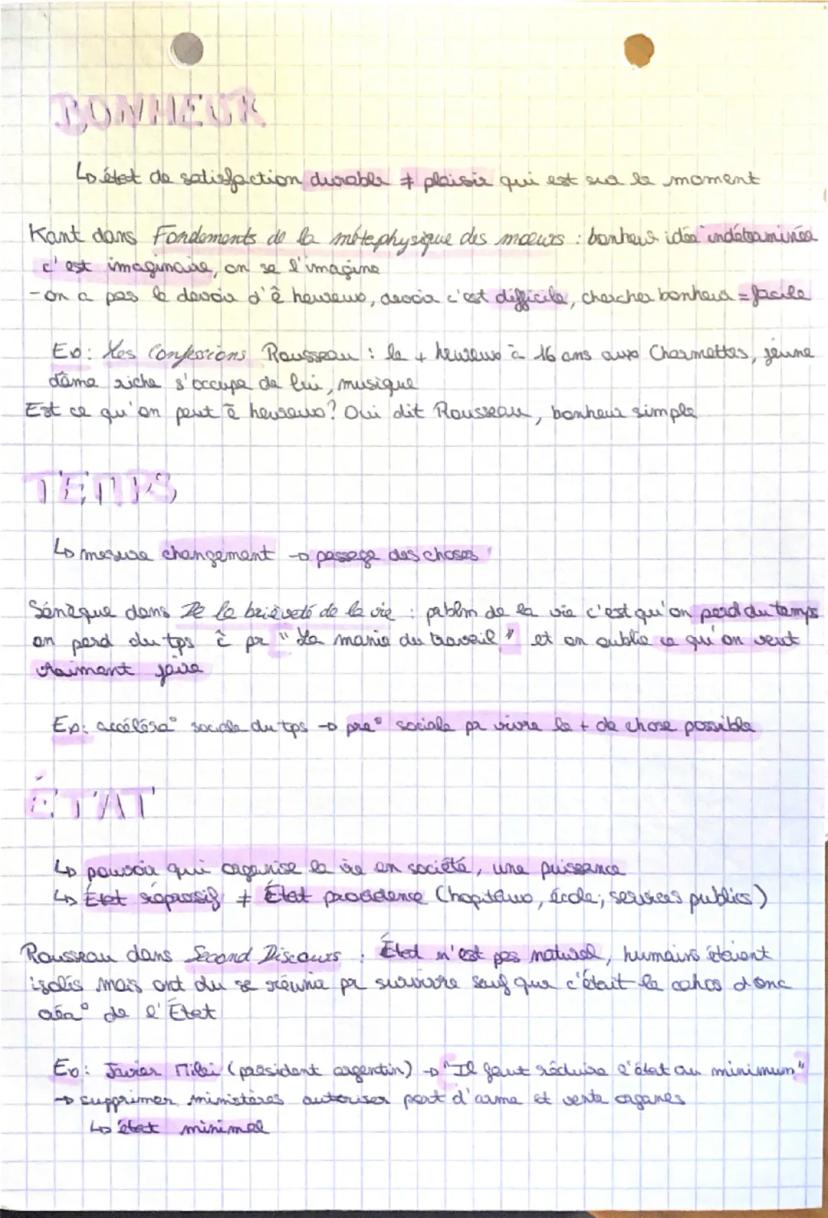 BONHEUR
↳ état de satisfaction durable ≠ plaisir qui est sur le moment
Kant dans Fondements de la métaphysique des mœurs : bonheur idée "indéterminée
c'est imaginaire, on se l'imagine
- on a pas le devoir d'ê heureux, devoir c'est difficile, chercher bonheur = facile
Ex : Les Confessions Rousseau : le + heureux à 16 ans aux Charmettes, jeune
dame riche s'occupe de lui, musique
Est ce qu'on peut ê heureux ? Oui dit Rousseau, bonheur simple
TEMPS
↳ mesure changement → passage des choses
Sénèque dans De la brièveté de la vie : pblm de la vie c'est qu'on perd du temps
on perd du tps à pr "La manie du travail" et on oublie ce qu'on veut
vraiment faire
Ex : accéléra° sociale du tps → pre° sociale pr vivre le + de chose possible
ÉTAT
↳ pouvoir qui organise la vie en société, une puissance
↳ État répressif ≠ État providence (hopitaux, école, services publics)
Rousseau dans Second Discours : État n'est pas naturel, humains étaient
isolés mais ont du se réunir pr survivre sauf que c'était le cahos donc
créa° de l'État
Ex : Javier Milei (président argentin) → "Il faut réduire l'état au minimum"
→ supprimer ministères autoriser port d'arme et vente organes
↳ état minimal